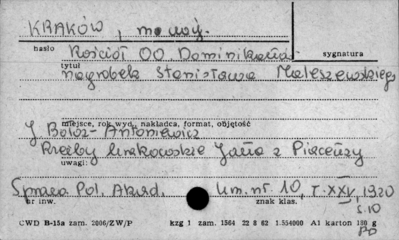 KRAKÓW, m. woj.
hasło Kościół OO Dominikanów sygnatura
tytuł
nagrobek Stanisława Maleszewskiego
miejsce, rok wyd., nakładca, format, objętość
J. Bołoz-Antoniewicz
Rzeźby krakowskie Jana z
uwagi:
Sprawo. Pol. Akad. Um. nr 10, T. XXV, 1920
nr inw. znak klas. s. 10
CWD B-15a zam. 2006/ZW/P kzg 1 zam. 1364 22 8 62 1.554000 A1 karton 180 g